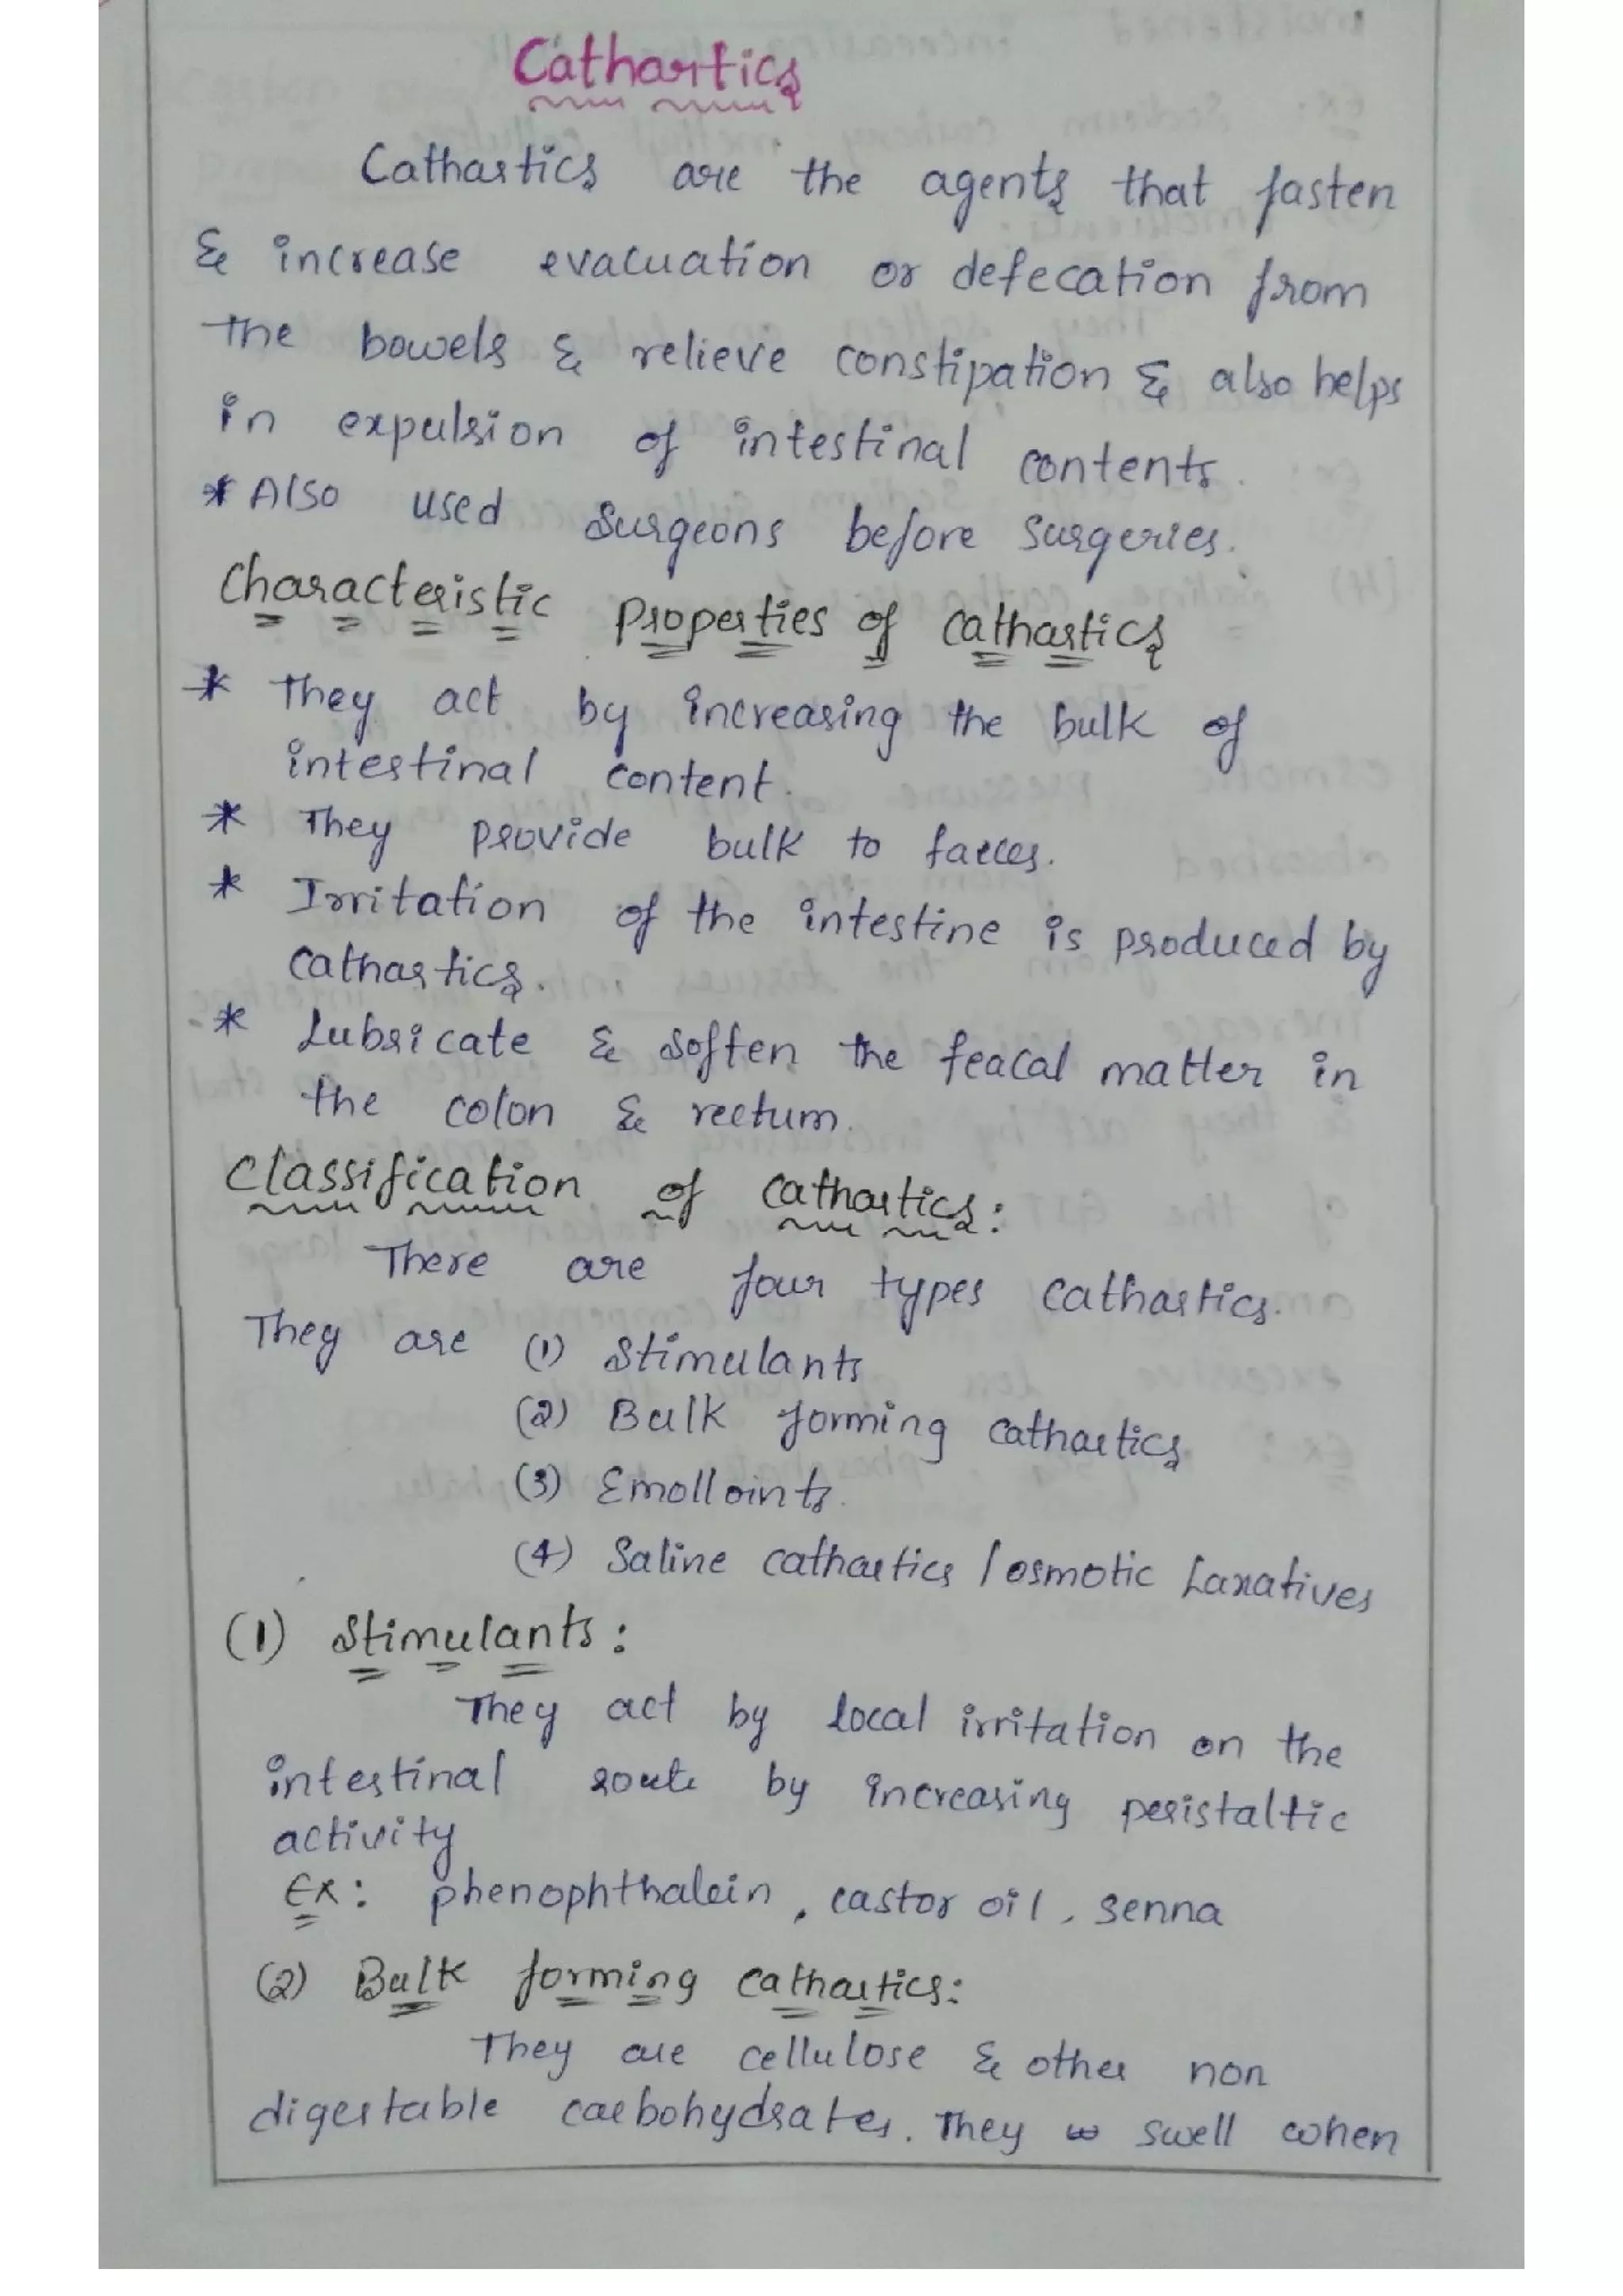 Cathartics
Cathartics are the agents that fasten
& increase evacuation or defecation from
the bowels & relieve constipation & also helps
in expulsion of intestinal contents.
* Also used Surgeons before Surgeries.
Characteristic Properties of Cathartics
* They act by increasing the bulk of
intestinal content.
* They provide bulk to faeces.
* Irritation of the intestine is produced by
Cathartics.
* Lubricate & soften the feacal matter in
the colon & rectum.
Classification of Cathartics:
There are four types Cathartics.
They are (1) Stimulants
(2) Bulk forming Cathartics
(3) Emolloints.
(4) Saline cathartics / osmotic Laxatives
(1) Stimulants:
They act by local irritation on the
intestinal route by increasing peristaltic
activity
Ex: phenophthalein, castor oil, senna
(2) Bulk forming Cathartics:
They are cellulose & other non
digestable carbohydrates. They swell when